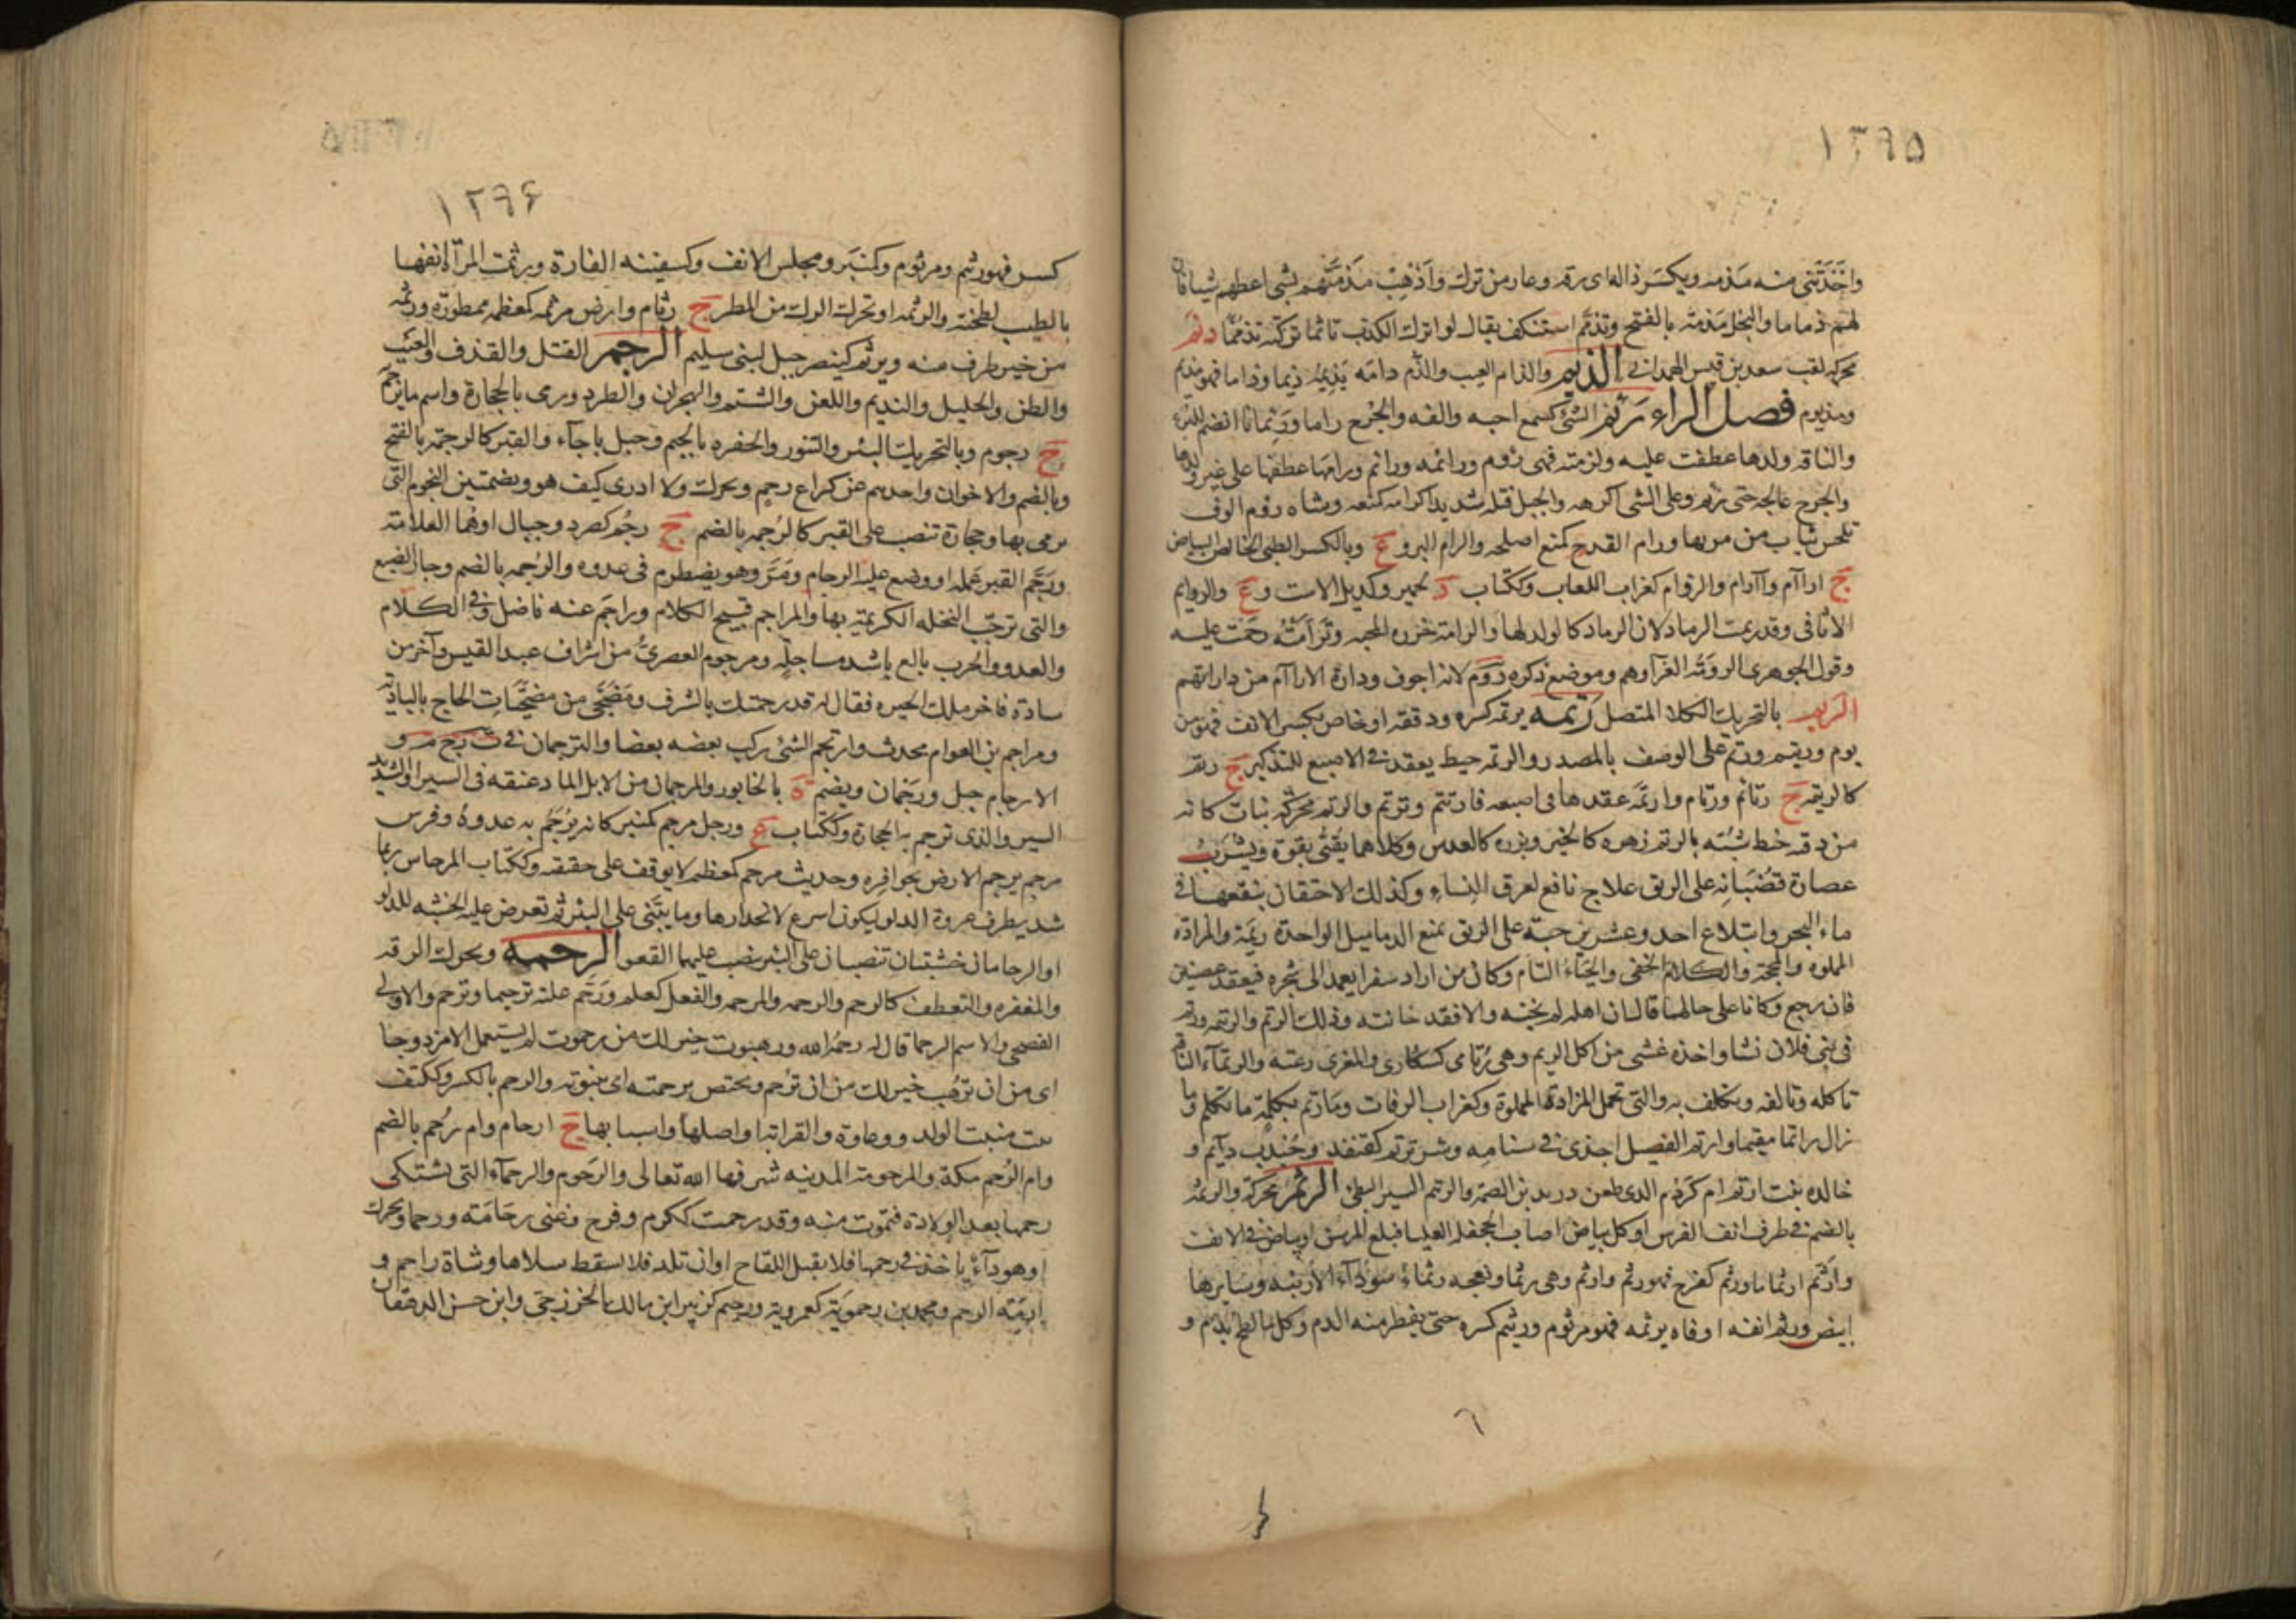 ١٣٩٥
واخذتنى منه مذمه ويكسر ذاله اى رقه وعار من ترك واذهب مذمتهم بشى اعطهم شيا فان
لهم ذماما والبخل مذمه بالفتح وتذمم استنكف يقال لو لم اترك الكذب تاثما تركته تذمما دلم
محركه لقب سعد بن قيس الهمدانى الذيم والذام العيب والذم دامه يذيمه ذيما وذاما فهو مذيم
ومذيوم فصل الراء رئم الشئ كسمع احبه والفه والجرح راما ورئمانا انضم للبرء
والناقه ولدها عطفت عليه ولزمته فهى رؤم ورائمه ورائم وارامها عطفها على غير ولدها
والجرح عالجه حتى رئم وعلى الشى اكرهه والحبل فتله شديدا كرامه كمنعه وشاه رؤم الوف
تلحس ثياب من مر بها ورام القدح كمنع اصلحه والرام البو و ع وبالكسر الظبى الخالص البياض
ج اراآم وآارام والرؤام كغراب اللعاب وككتاب د لحمير وكديل الاست و ع والروايم
الاثافى وقد رئمت الرماد لان الرماد كالولد لها والرامة خرزه المحبه وترأمته رحمت عليه
وقول الجوهرى الرومة الغرا وهم وموضع ذكره روم لانه اجوف ودارة الاراآم من داراتهم
الريم بالتحريك الكلا المتصل رتمه يرتمه كسره ودققه او خاص بكسر الانف فهو مر
توم ورتيم ورتم على الوصف بالمصدر والرتمه خيط يعقد فى الاصبع للتذكير ج رتم
كالرتيمه ج رتائم ورتام وارتمه عقدها فى اصبعه فارتتم وترتم والرتم محركه نبات كانه
من دقه خط شبه بالرتم زهره كالخيرى وبزره كالعدس وكلاهما يقئى بقوة ويشرب
عصارة قضبانه على الريق علاج نافع لعرق النساء وكذلك الاحتقان بنقعها فى
ماء البحر وابتلاع احد وعشرين حبة على الريق يمنع الدماميل الواحدة رتمة والمزادة
المملوة والمحجة والكلام الخفى والحياء التام وكان من اراد سفرا يعمد الى شجره فيعقد غصنين
فان رجع وكانا على حالهما قال ان اهله لم تخنه والا فقد خانته وذلك الرتم والرتمه ورتم
فى بنى فلان نشا واخذه غشى من اكل الرتم وهى رتامى كسكارى والمعزى رعته والرتمآء الناقه
تاكله وتالفه وتكلف به والتى تحمل المزادة المملوة وكغراب الرفات وما رتم بكلمة ما تكلم وما
زال راتما مقيما وارتم الفصيل اجذى فى سنامه وشر ترتم كقنفد وجندب دآيم و
خالده بنت ارتم ام كردم الذى طعن دريد بن الصمة والرتم السير البطئ الرثم محركة والرثمة
بالضم فى طرف انف الفرس او كل بياض اصاب الجحفله العليا فبلغ المرسن او بياض فى الانف
وارثم ارثماما ورثم كفرح فهو رثم وارثم وهى رثما ونعجه رثماء سودآء الارنبه وسايرها
ابيض ورثم انفه او فاه يرثمه فهو مرثوم ورثيم كسره حتى يقطر منه الدم وكل ما لطخ بدم و
٦
١٣٩۶
كسر فهو رثيم ومرثوم وكمنبر ومجلس الانف وكسفينه الفارة ورثمت المرأة انفها
بالطيب لطخته والرثمه او تحرك الرك من المطر ج رثام وارض مرثمه كمعظمه ممطورة ورثمه
من خبر طرف منه ويرثم كينصر جبل لبنى سليم الرجم القتل والقذف والغيب
والظن والخليل والنديم واللعن والشتم والهجران والطرد ورمى بالحجارة واسم ما يرجم به
ج رجوم وبالتحريك البئر والتنور والحفره بالجيم وجبل باجآء والقبر كالرجمة بالفتح
وبالضم والاخوان واحدهم عن كراع رجم ويحرك ولا ادرى كيف هو وبضمتين النجوم التى
يرمى بها وحجارة تنصب على القبر كالرجمه بالضم ج رجم كصرد وجبال او هما العلامة
ورجم القبر علمه او وضع عليه الرجام ومر وهو يضطرم فى عدوه والرجمه بالضم وجار الضبع
والتى ترجب النخله الكريمة بها والمراجم قبيح الكلام وراجم عنه ناضل وفى الكلام
والعدو والحرب بالغ باشد مساجلة ومرجوم العصرى من اشراف عبد القيس وآخر من
سادة فاخر ملك الحيره فقال له قد رجمتك بالشرف ومضحى من مضحيات الحاج بالبادية
ومراجم بن العوام محدث وارتجم الشئ ركب بعضه بعضا والترجمان فى ت ر ج م و
الارجام جبل ورجمان ويضم ة بالخابور والمرجمان من الابل الماد عنقه فى السير او الشديد
السير والذى ترجم به الحجارة وككتاب ع ورجل مرجم كمنبر كانه يرجم به عدوه وفرس
مرجم يرجم الارض بحوافره وحديث مرجم كمعظم لا يوقف على حقيقته وككتاب المرجاس ربما
شد بطرف عروة الدلو ليكون اسرع لانحدارها وما يبتنى على البئر ثم تعرض عليه الخشبه للدلو
او الرجامان خشبتان تنصبان على البئر ينصب عليهما القعو الرحمة ويحرك الرقه
والمغفره والتعطف كالرحم والرحمه والمرحمه والفعل كعلم ورحم عليه ترحيما وترحم والاولى
الفصحى والاسم الرحما قال له رحمه الله ورهبوت خير لك من رحموت لم يستعمل الا مزدوجا
اى من ان ترهب خير لك من ان ترحم ويختص برحمته اى بنبوته والرحم بالكسر وككتف
بيت منبت الولد ووعاوه والقرابه او اصلها واسبابها ج ارحام وام رحم بالضم
وام الرحم مكة والمرحومة المدينه شرفها الله تعالى والرحوم والرحمآء التى تشتكى
رحمها بعد الولادة فتموت منه وقد رحمت ككرم وفرح وعنى رحامة ورحما ويحرك
او هو دآء ياخذ فى رحمها فلا تقبل اللقاح او ان تلد فلا يسقط سلاها وشاة راحم و
ارمه الرحم ومحمد بن رحموية كعمروية ورحيم كزبير ابن مالك الخزرجى وابن حسن الدهقان